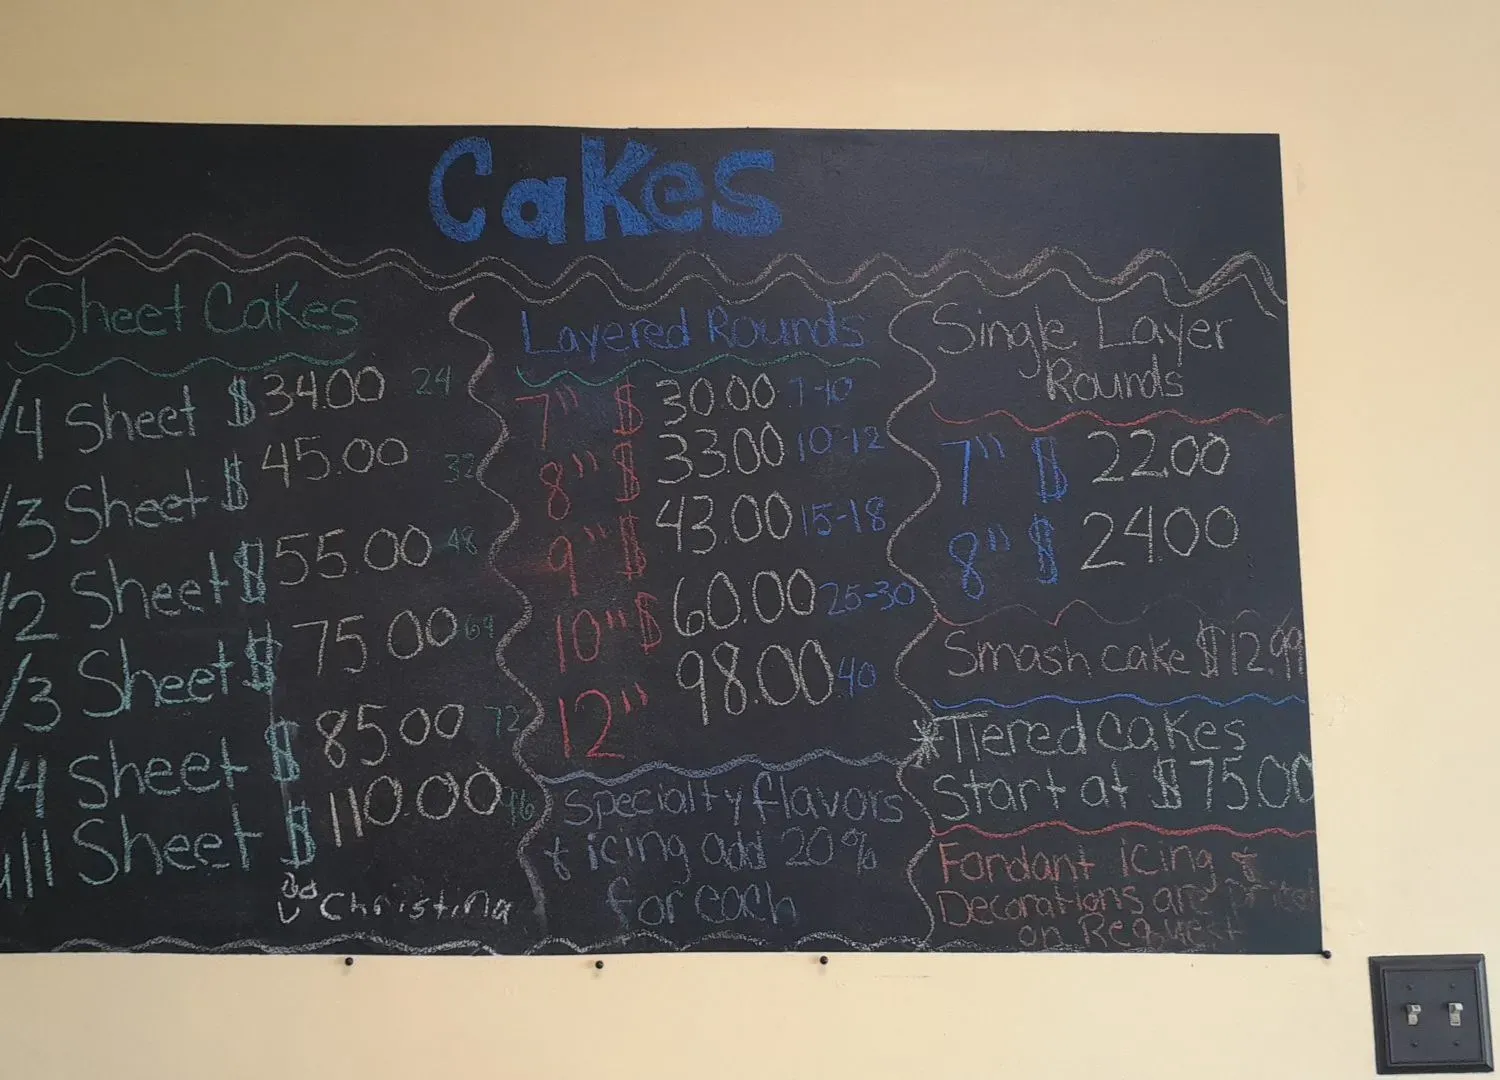 Cakes
Sheet Cakes
/4 Sheet $ 34.00 24
/3 Sheet $ 45.00 32
/2 Sheet $ 55.00 48
/3 Sheet $ 75.00 64
/4 Sheet $ 85.00 72
ull Sheet $ 110.00 96
Christina
Layered Rounds
7" $ 30.00 7-10
8" $ 33.00 10-12
9" $ 43.00 15-18
10" $ 60.00 25-30
12" 98.00 40
Specialty flavors
& icing add 20%
for each
Single Layer
Rounds
7" $ 22.00
8" $ 24.00
Smash cake $12.99
*Tiered cakes
Start at $75.00
Fondant icing &
Decorations are priced
on Request